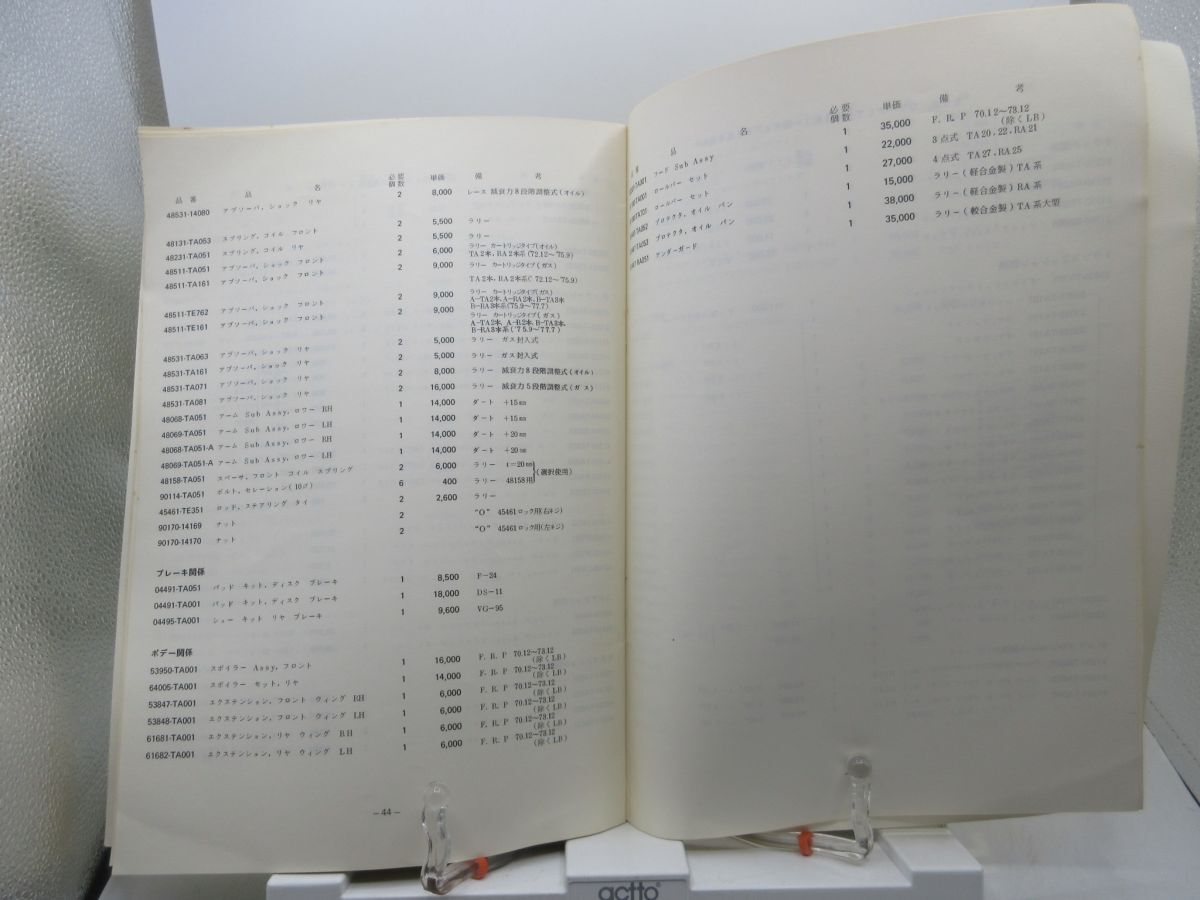 品番 品 名 必要個数 単価 備 考
48531-14080 アブソーバ, ショック リヤ 2 8,000 レース 減衰力8段階調整式(オイル)
48131-TA053 スプリング, コイル フロント 2 5,500 ラリー
48231-TA051 スプリング, コイル リヤ 2 5,500 ラリー
48511-TA051 アブソーバ, ショック フロント 2 6,000 ラリー カートリッジタイプ(オイル)
TA2本, RA2本系(72.12〜'75.9)
48511-TA161 アブソーバ, ショック フロント 2 9,000 ラリー カートリッジタイプ(ガス)
TA2本, RA2本系('72.12〜'75.9)
48511-TE762 アブソーバ, ショック フロント 2 9,000 ラリー カートリッジタイプ(ガス)
A-TA2本, A-RA2本, B-TA3本
B-RA3本系(75.9〜'77.7)
48511-TE161 アブソーバ, ショック フロント 2 9,000 ラリー カートリッジタイプ(ガス)
A-TA2本, A-RA2本, B-TA3本,
B-RA3本系('75.9〜'77.7)
48531-TA063 アブソーバ, ショック リヤ 2 5,000 ラリー ガス封入式
48531-TA161 アブソーバ, ショック リヤ 2 5,000 ラリー ガス封入式
48531-TA071 アブソーバ, ショック リヤ 2 8,000 ラリー 減衰力8段階調整式(オイル)
48531-TA081 アブソーバ, ショック リヤ 2 16,000 ラリー 減衰力5段階調整式(ガス)
48068-TA051 アーム Sub Assy, ロワー RH 1 14,000 ダート +15㎜
48069-TA051 アーム Sub Assy, ロワー LH 1 14,000 ダート +15㎜
48068-TA051-A アーム Sub Assy, ロワー RH 1 14,000 ダート +20㎜
48069-TA051-A アーム Sub Assy, ロワー LH 1 14,000 ダート +20㎜
48158-TA051 スペーサ, フロント コイル スプリング 2 6,000 ラリー t=20㎜ (選択使用)
90114-TA051 ボルト, セレーション(10∅) 6 400 ラリー 48158用
45461-TE351 ロッド, ステアリング タイ 2 2,600 ラリー
90170-14169 ナット 2 “O” 45461ロック用(右ネジ)
90170-14170 ナット 2 “O” 45461ロック用(左ネジ)
ブレーキ関係
04491-TA051 パッド キット, ディスク ブレーキ 1 8,500 F-24
04491-TA001 パッド キット, ディスク ブレーキ 1 18,000 DS-11
04495-TA001 シュー キット リヤ ブレーキ 1 9,600 VG-95
ボデー関係
53950-TA001 スポイラー Assy, フロント 1 16,000 F. R. P 70.12〜73.12
(除くLB)
64005-TA001 スポイラー セット, リヤ 1 14,000 F. R. P 70.12〜73.12
(除くLB)
53847-TA001 エクステンション, フロント ウィング RH 1 6,000 F. R. P 70.12〜73.12
(除くLB)
53848-TA001 エクステンション, フロント ウィング LH 1 6,000 F. R. P 70.12〜73.12
(除くLB)
61681-TA001 エクステンション, リヤ ウィング RH 1 6,000 F. R. P 70.12〜73.12
(除くLB)
61682-TA001 エクステンション, リヤ ウィング LH 1 6,000 F. R. P 70.12〜73.12
(除くLB)
-44-
品番 品 名 必要個数 単価 備 考
フード Sub Assy 1 35,000 F. R. P 70.12〜73.12
(除くLB)
ロールバー セット 1 22,000 3点式 TA20, 22, RA21
ロールバー セット 1 27,000 4点式 TA27, RA25
プロテクタ, オイル パン 1 15,000 ラリー(軽合金製)TA系
プロテクタ, オイル パン 1 38,000 ラリー(軽合金製)RA系
アンダーガード 1 35,000 ラリー(軽合金製)TA系大型
actto